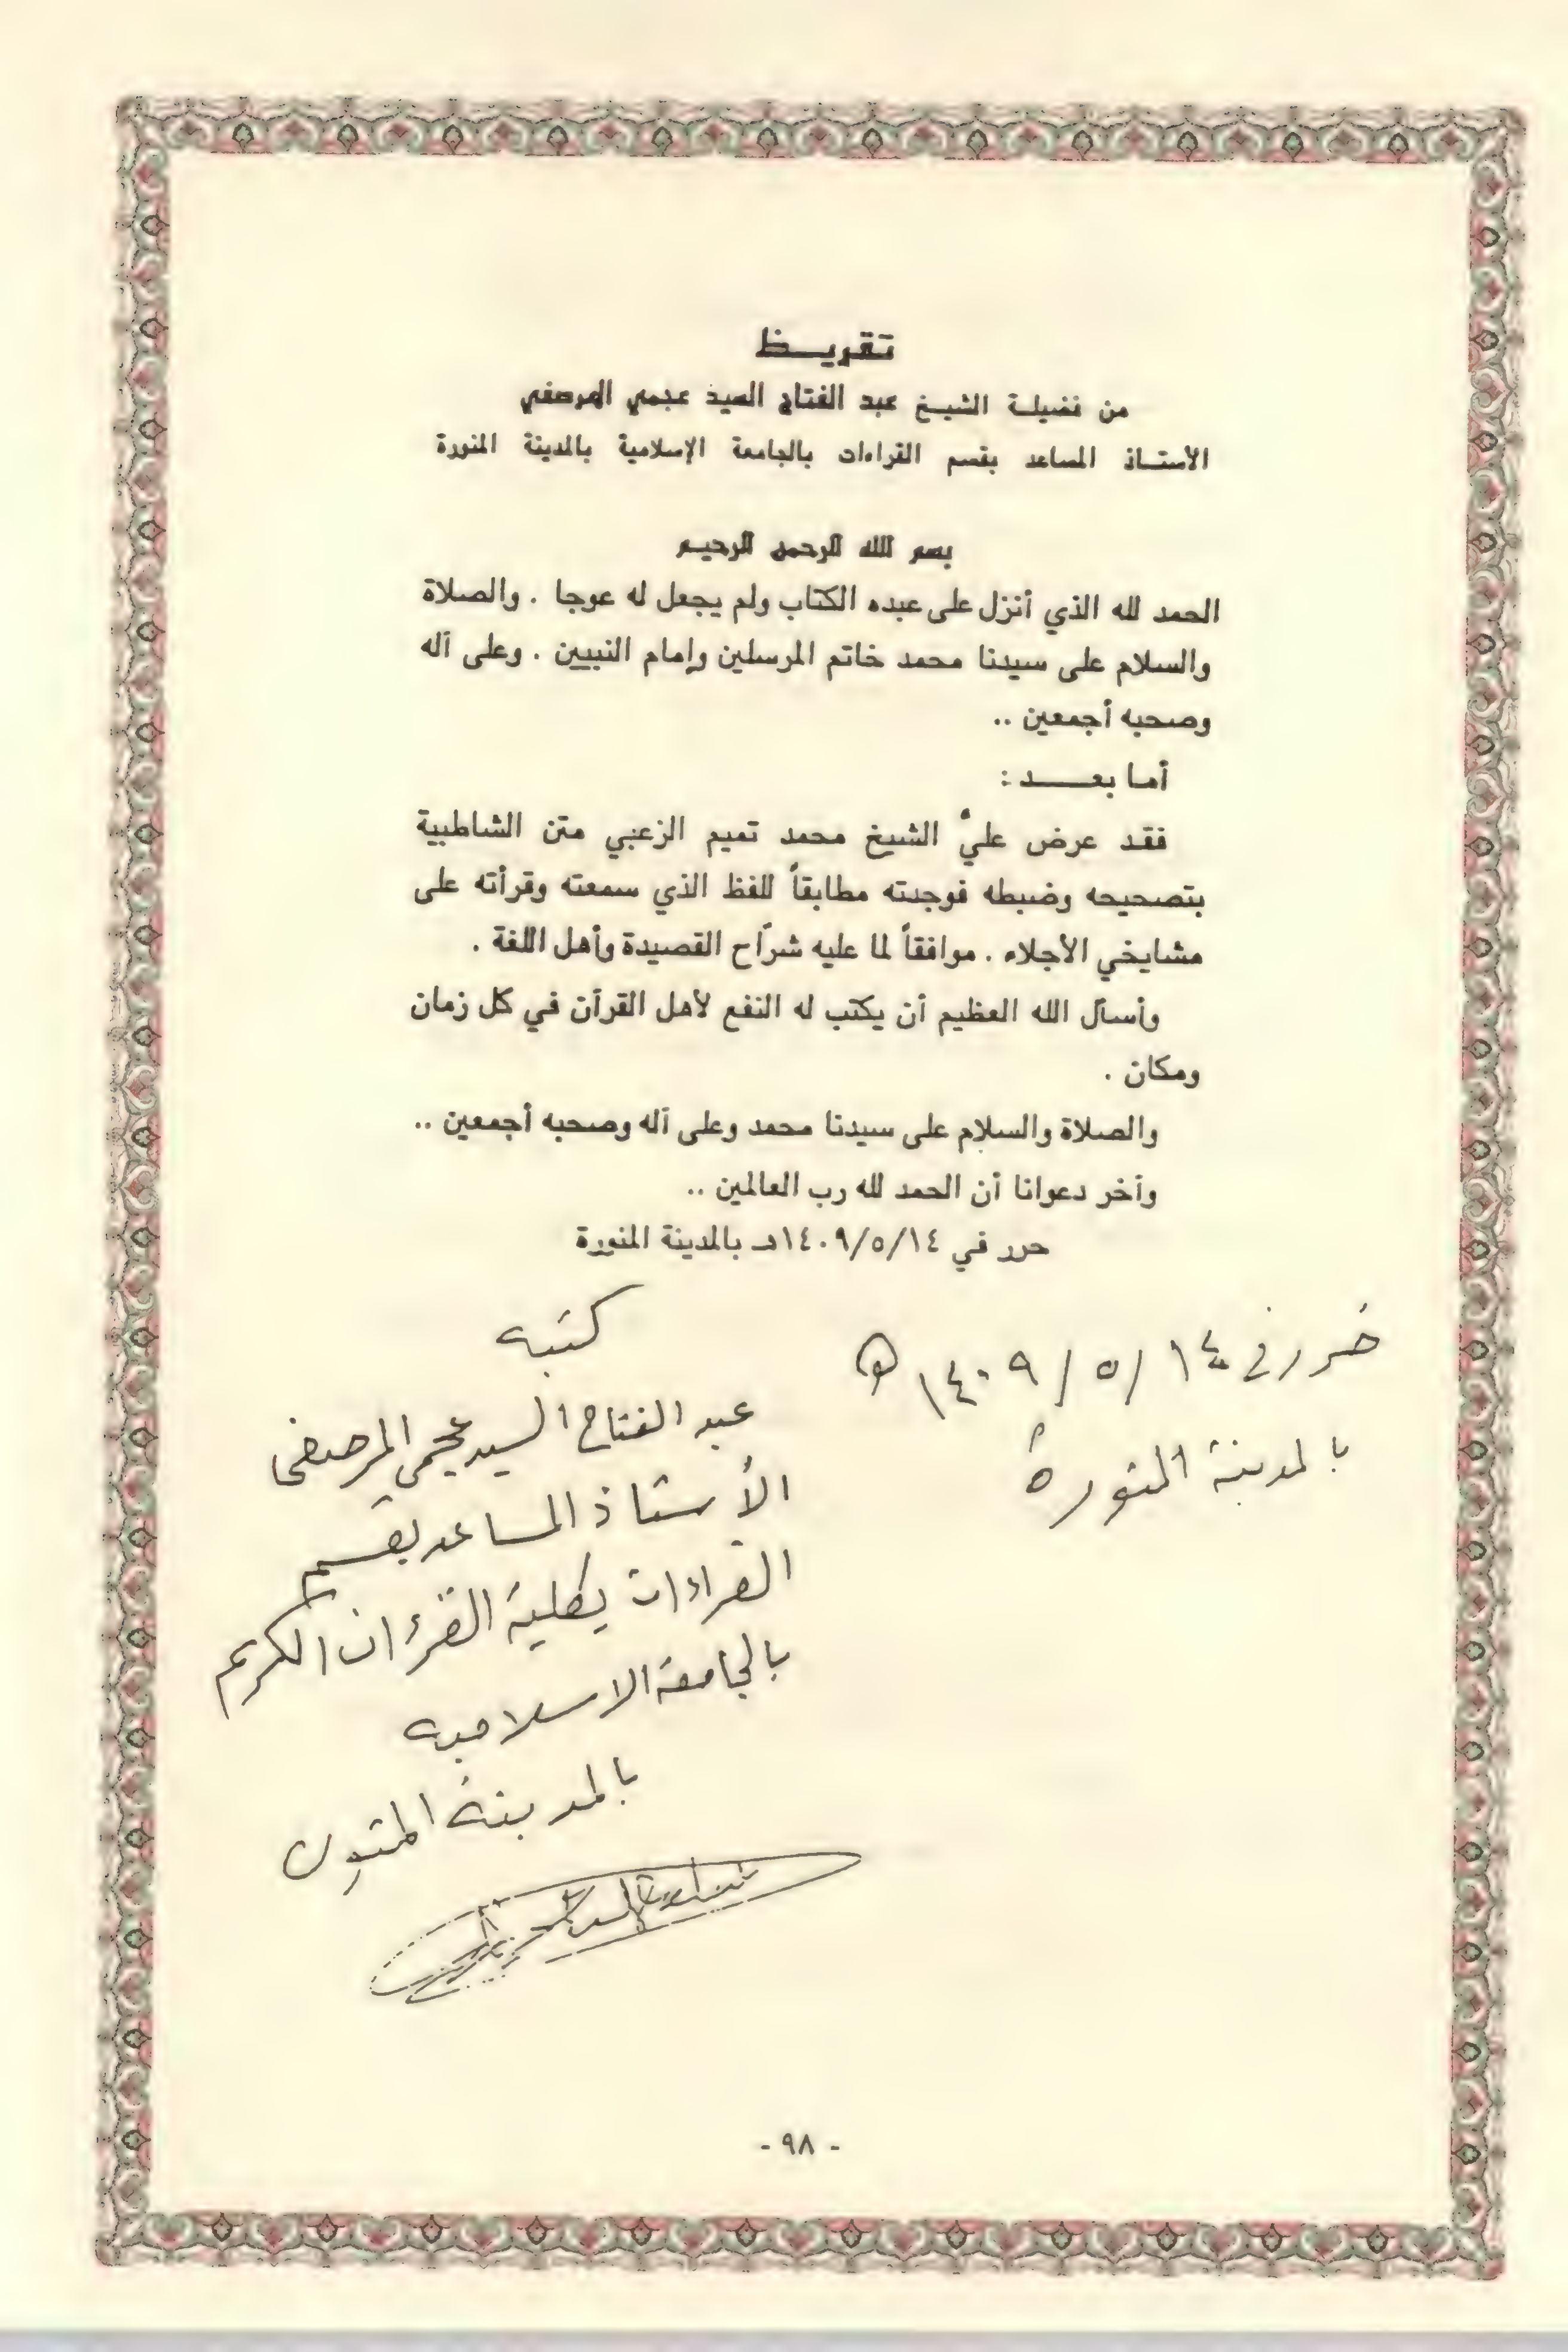 تقريــظ
من فضيلة الشيخ عبد الفتاح السيد عجمي المرصفي
الأستـاذ المساعد بقسم القراءات بالجامعة الإسلامية بالمدينة المنورة
بسم الله الرحمن الرحيم
الحمد لله الذي أنزل على عبده الكتاب ولم يجعل له عوجا . والصلاة
والسلام على سيدنا محمد خاتم المرسلين وإمام النبيين . وعلى آله
وصحبه أجمعين ..
أما بعــــد :
فقد عرض عليَّ الشيخ محمد تميم الزعبي متن الشاطبية
بتصحيحه وضبطه فوجدته مطابقاً للفظ الذي سمعته وقرأته على
مشايخي الأجلاء . موافقاً لما عليه شرّاح القصيدة وأهل اللغة .
وأسأل الله العظيم أن يكتب له النفع لأهل القرآن في كل زمان
ومكان .
والصلاة والسلام على سيدنا محمد وعلى آله وصحبه أجمعين ..
وآخر دعوانا أن الحمد لله رب العالمين ..
حرر في ١٤٠٩/٥/١٤هـ بالمدينة المنورة
حرر في ١٤ / ٥ / ١٤٠٩ هـ
بالمدينة المنورة
كتبه
عبد الفتاح السيد عجمي المرصفى
الأستاذ المساعد بقسم
القراءات بكلية القرءان الكريم
بالجامعة الاسلامية
بالمدينة المنورة
- ٩٨ -